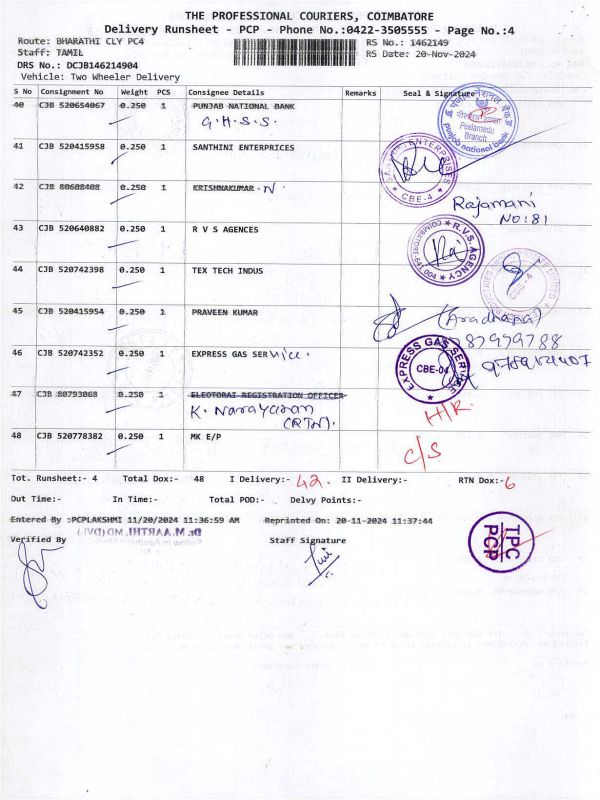 THE PROFESSIONAL COURIERS, COIMBATORE
Delivery Runsheet - PCP - Phone No.:0422-3505555 - Page No.:4
Route: BHARATHI CLY PC4 RS No.: 1462149
Staff: TAMIL RS Date: 20-Nov-2024
DRS No.: DCJB146214904
Vehicle: Two Wheeler Delivery
S No Consignment No Weight PCS Consignee Details Remarks Seal & Signature
40 CJB 520654067 0.250 1 PUNJAB NATIONAL BANK
G.H.S.S.
Peelamedu
Branch
punjab national bank
41 CJB 520415958 0.250 1 SANTHINI ENTERPRISES
CBE-4
42 CJB 80608408 0.250 1 KRISHNAKUMAR N.
Rajamani
NO:81
43 CJB 520640882 0.250 1 R V S AGENCES
R.V.S. AGENCY
COIMBATORE-641 004
44 CJB 520742398 0.250 1 TEX TECH INDUS
CBE-4
45 CJB 520415954 0.250 1 PRAVEEN KUMAR
(Aradhana)
46 CJB 520742352 0.250 1 EXPRESS GAS SERVice.
EXPRESS GAS SERVICE
CBE-04
47 CJB 80793068 0.250 1 ELEOTORAI REGISTRATION OFFICER
K. Narayanan
(RTN).
H/R.
48 CJB 520778382 0.250 1 MK E/P
C/S
Tot. Runsheet:- 4 Total Dox:- 48 I Delivery:- 42. II Delivery:- RTN Dox:- 6
Out Time:- In Time:- Total POD:- Delvy Points:-
Entered By :PCPLAKSHMI 11/20/2024 11:36:59 AM Reprinted On: 20-11-2024 11:37:44
Dr.M.AARTHI, MD(DVL)
Verified By Staff Signature
TPC
PCP